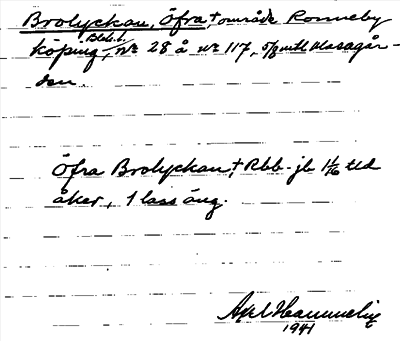 Brolyckan, Öfra, † område Ronneby
köping, Blek. l. nr 28 å nr 117, 5/8 mtl Massagår-
den.
Öfra Brolyckan, † Rbb-jb 1 1/6 tld
åker, 1 lass äng.
Axel Hammelin
1941